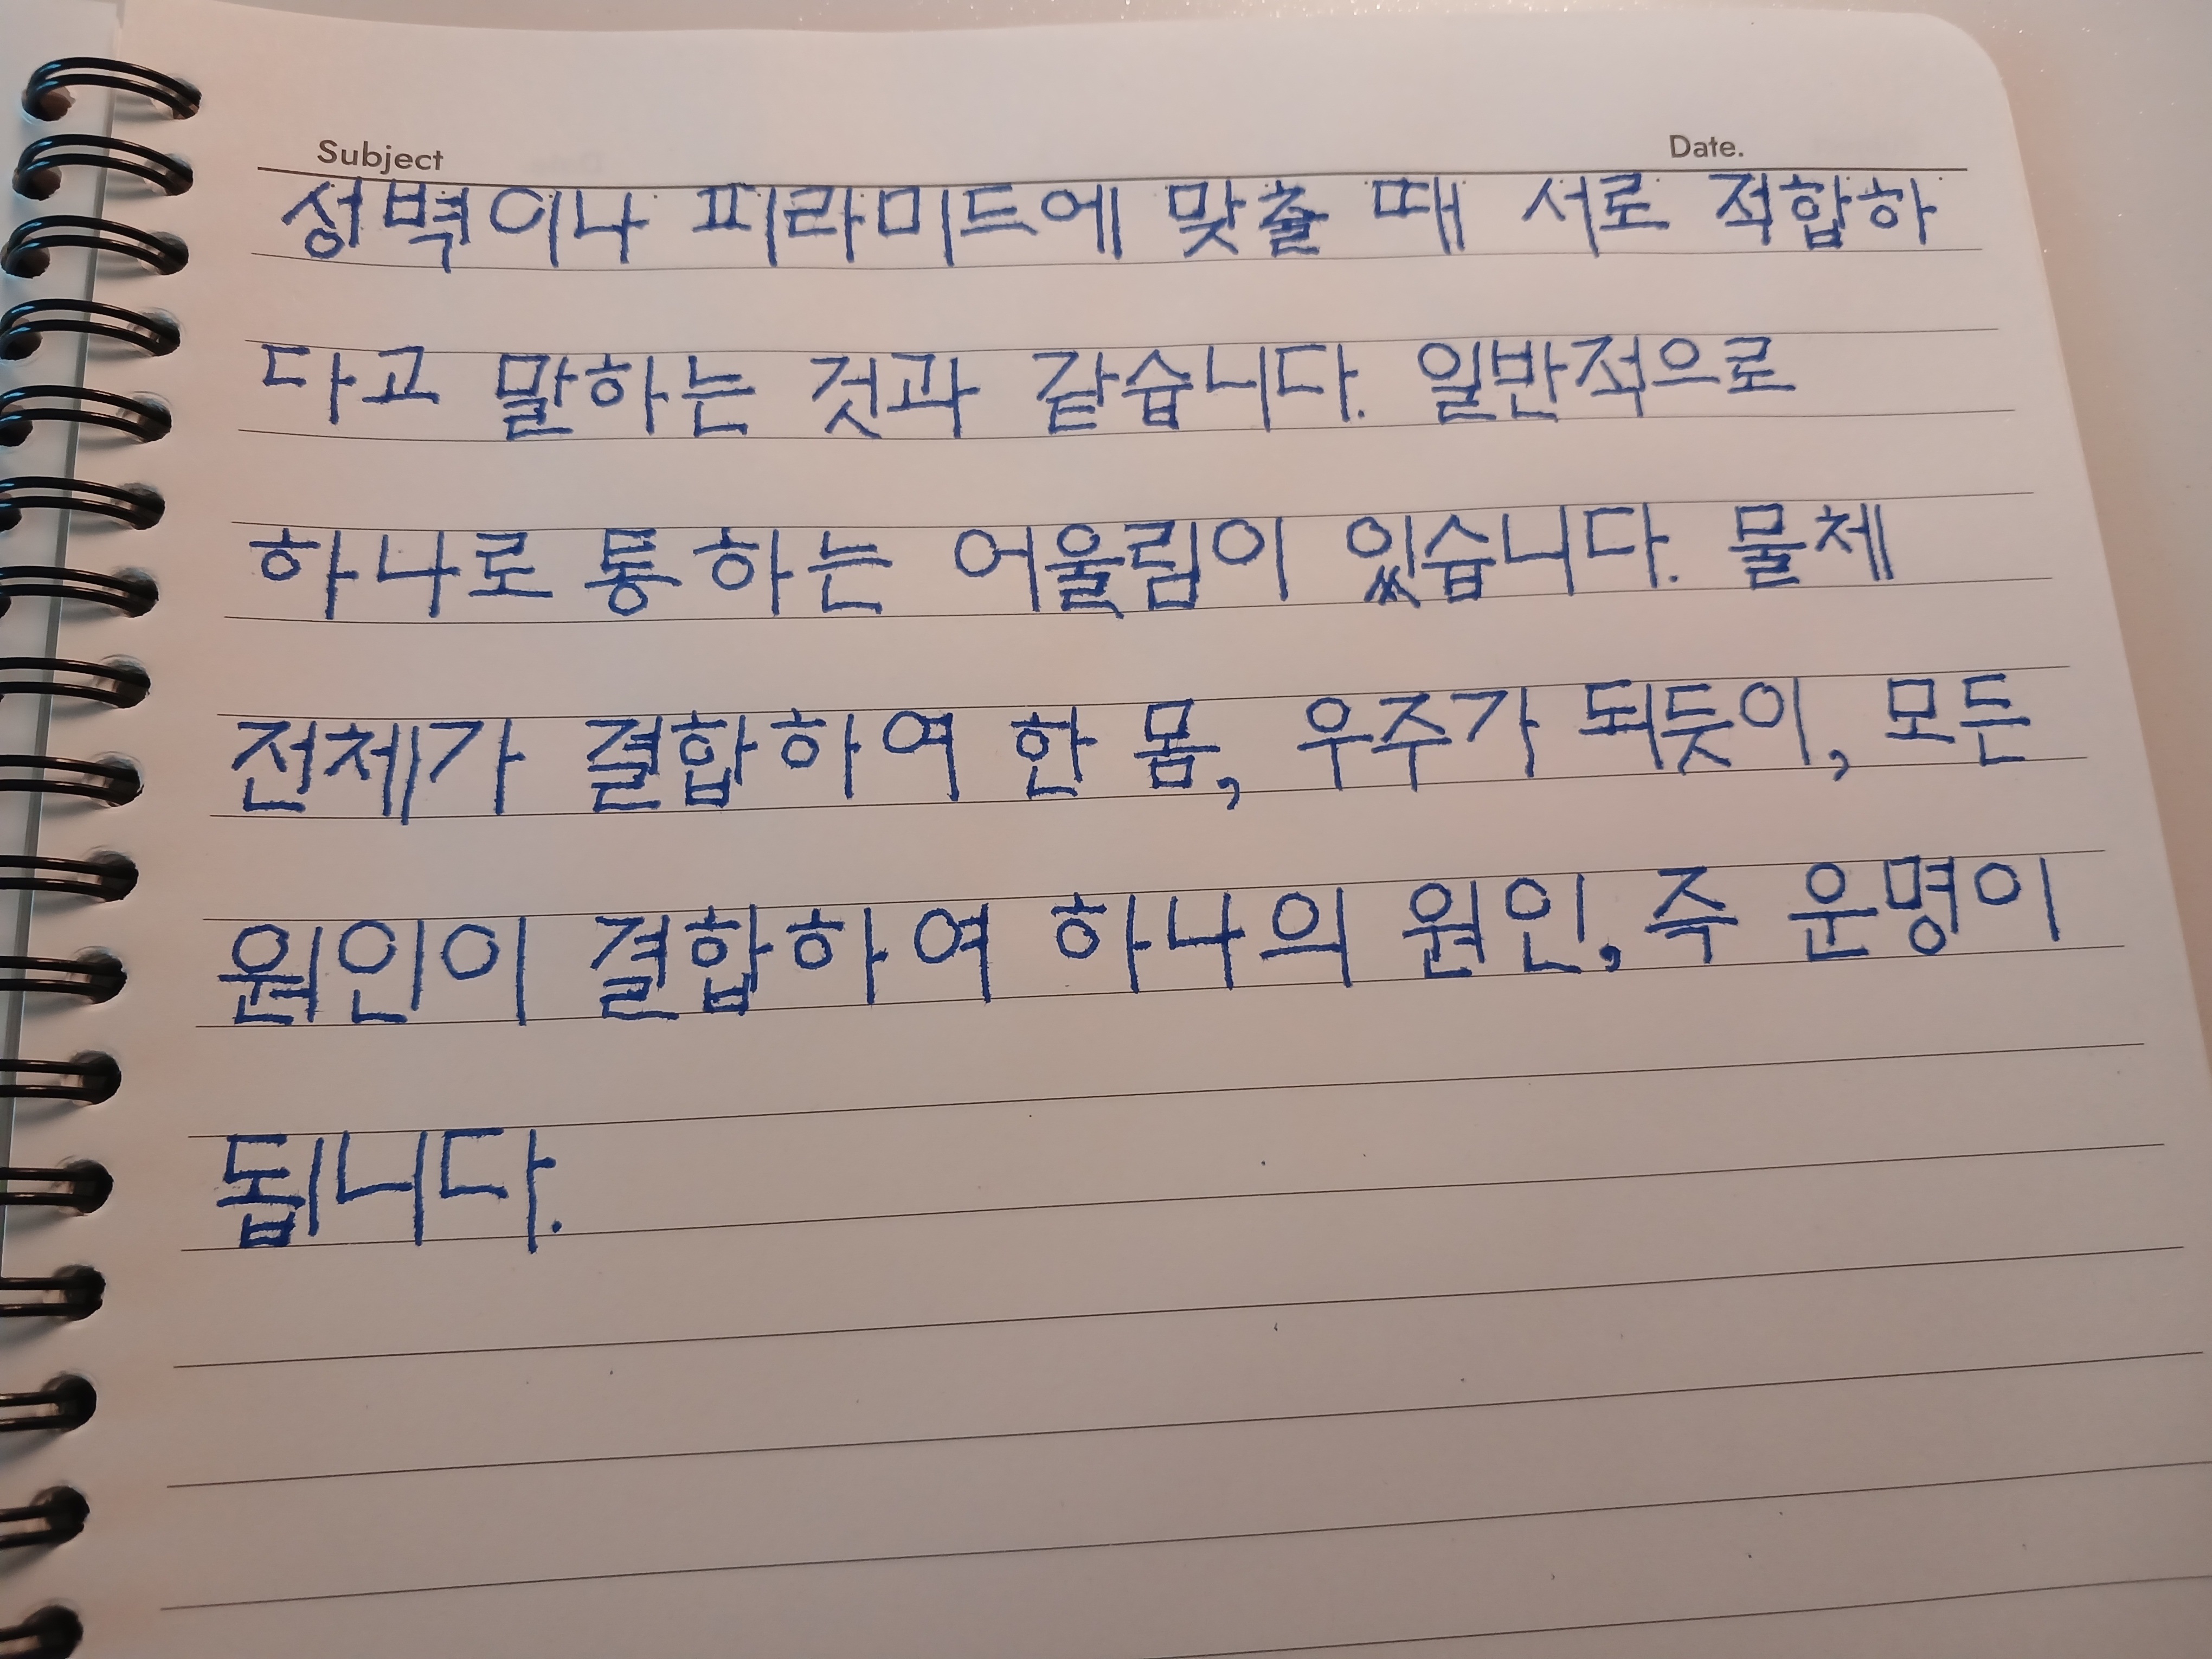 Subject Date.
성벽이나 피라미드에 맞출 때 서로 적합하
다고 말하는 것과 같습니다. 일반적으로
하나로 통하는 어울림이 있습니다. 물체
전체가 결합하여 한 몸, 우주가 되듯이, 모든
원인이 결합하여 하나의 원인, 즉 운명이
됩니다.